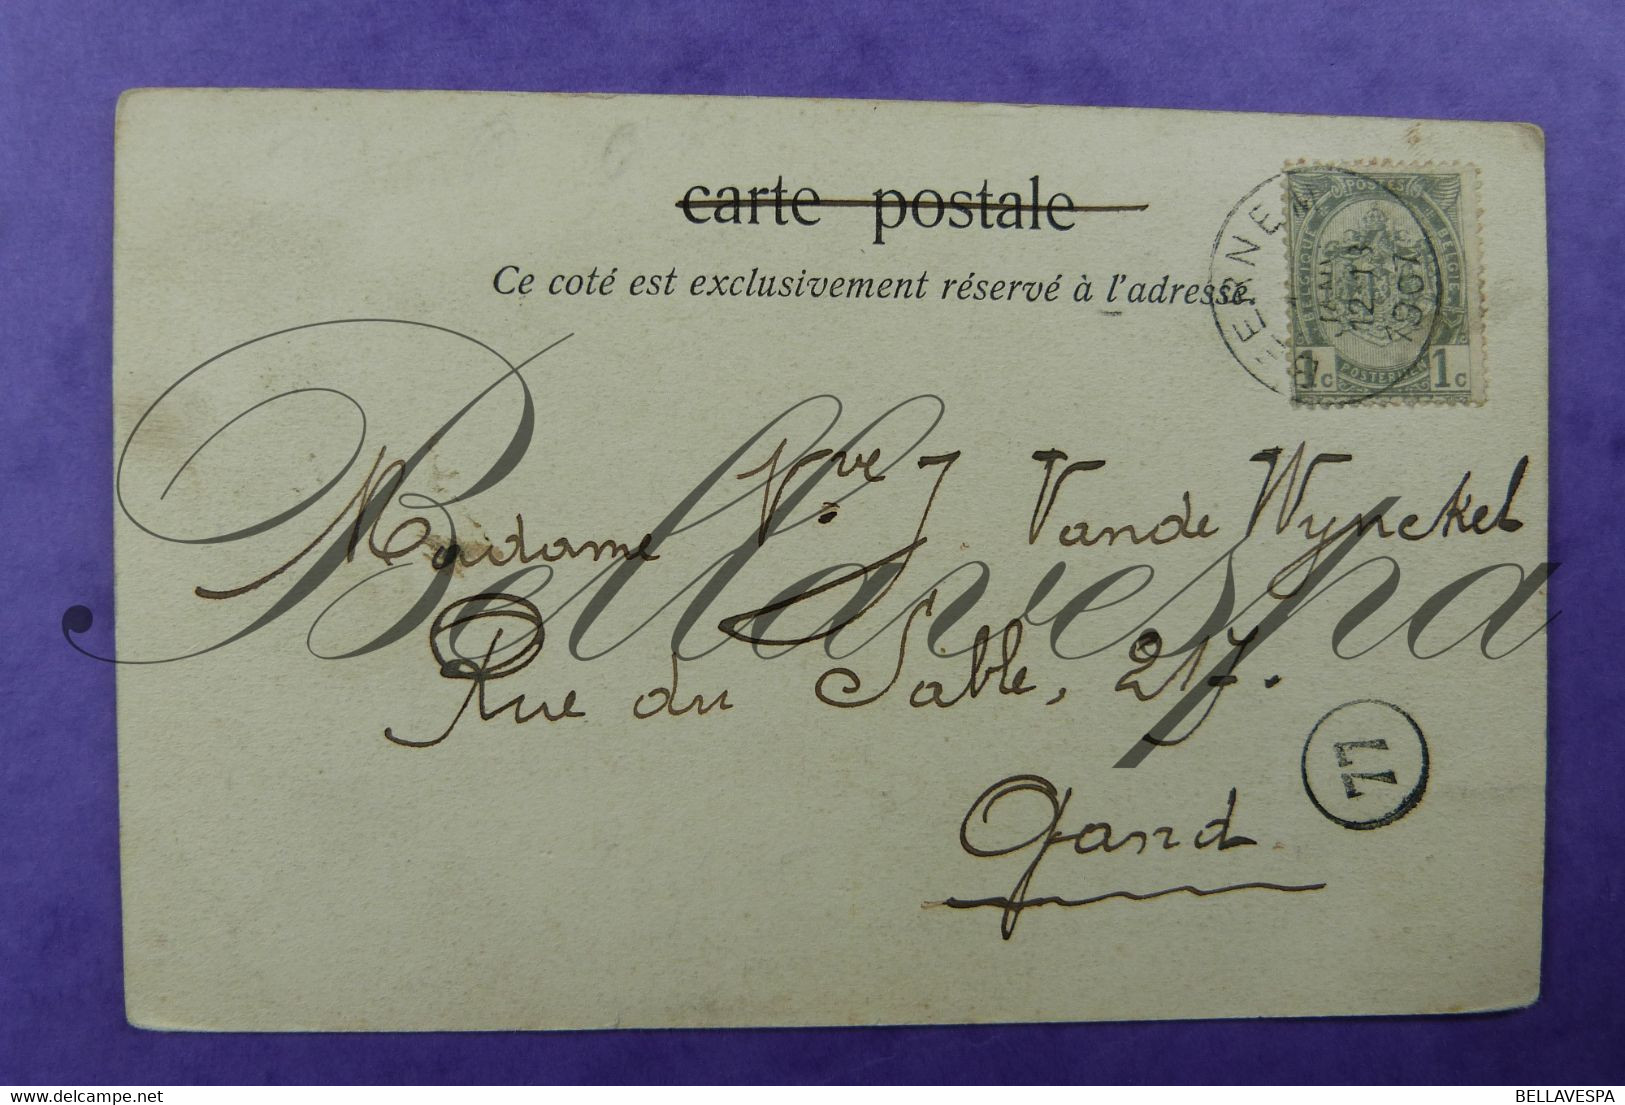 carte postale
Ce coté est exclusivement réservé à l'adresse.
BELGIQUE POSTES BELGIË
POSTERIJEN
1c 1c
JANV
12-13
1907
Madame Vve J. Vande Wynckel
Rue du Sable, 217.
Gand
77
Bellavespa
BELLAVESPA